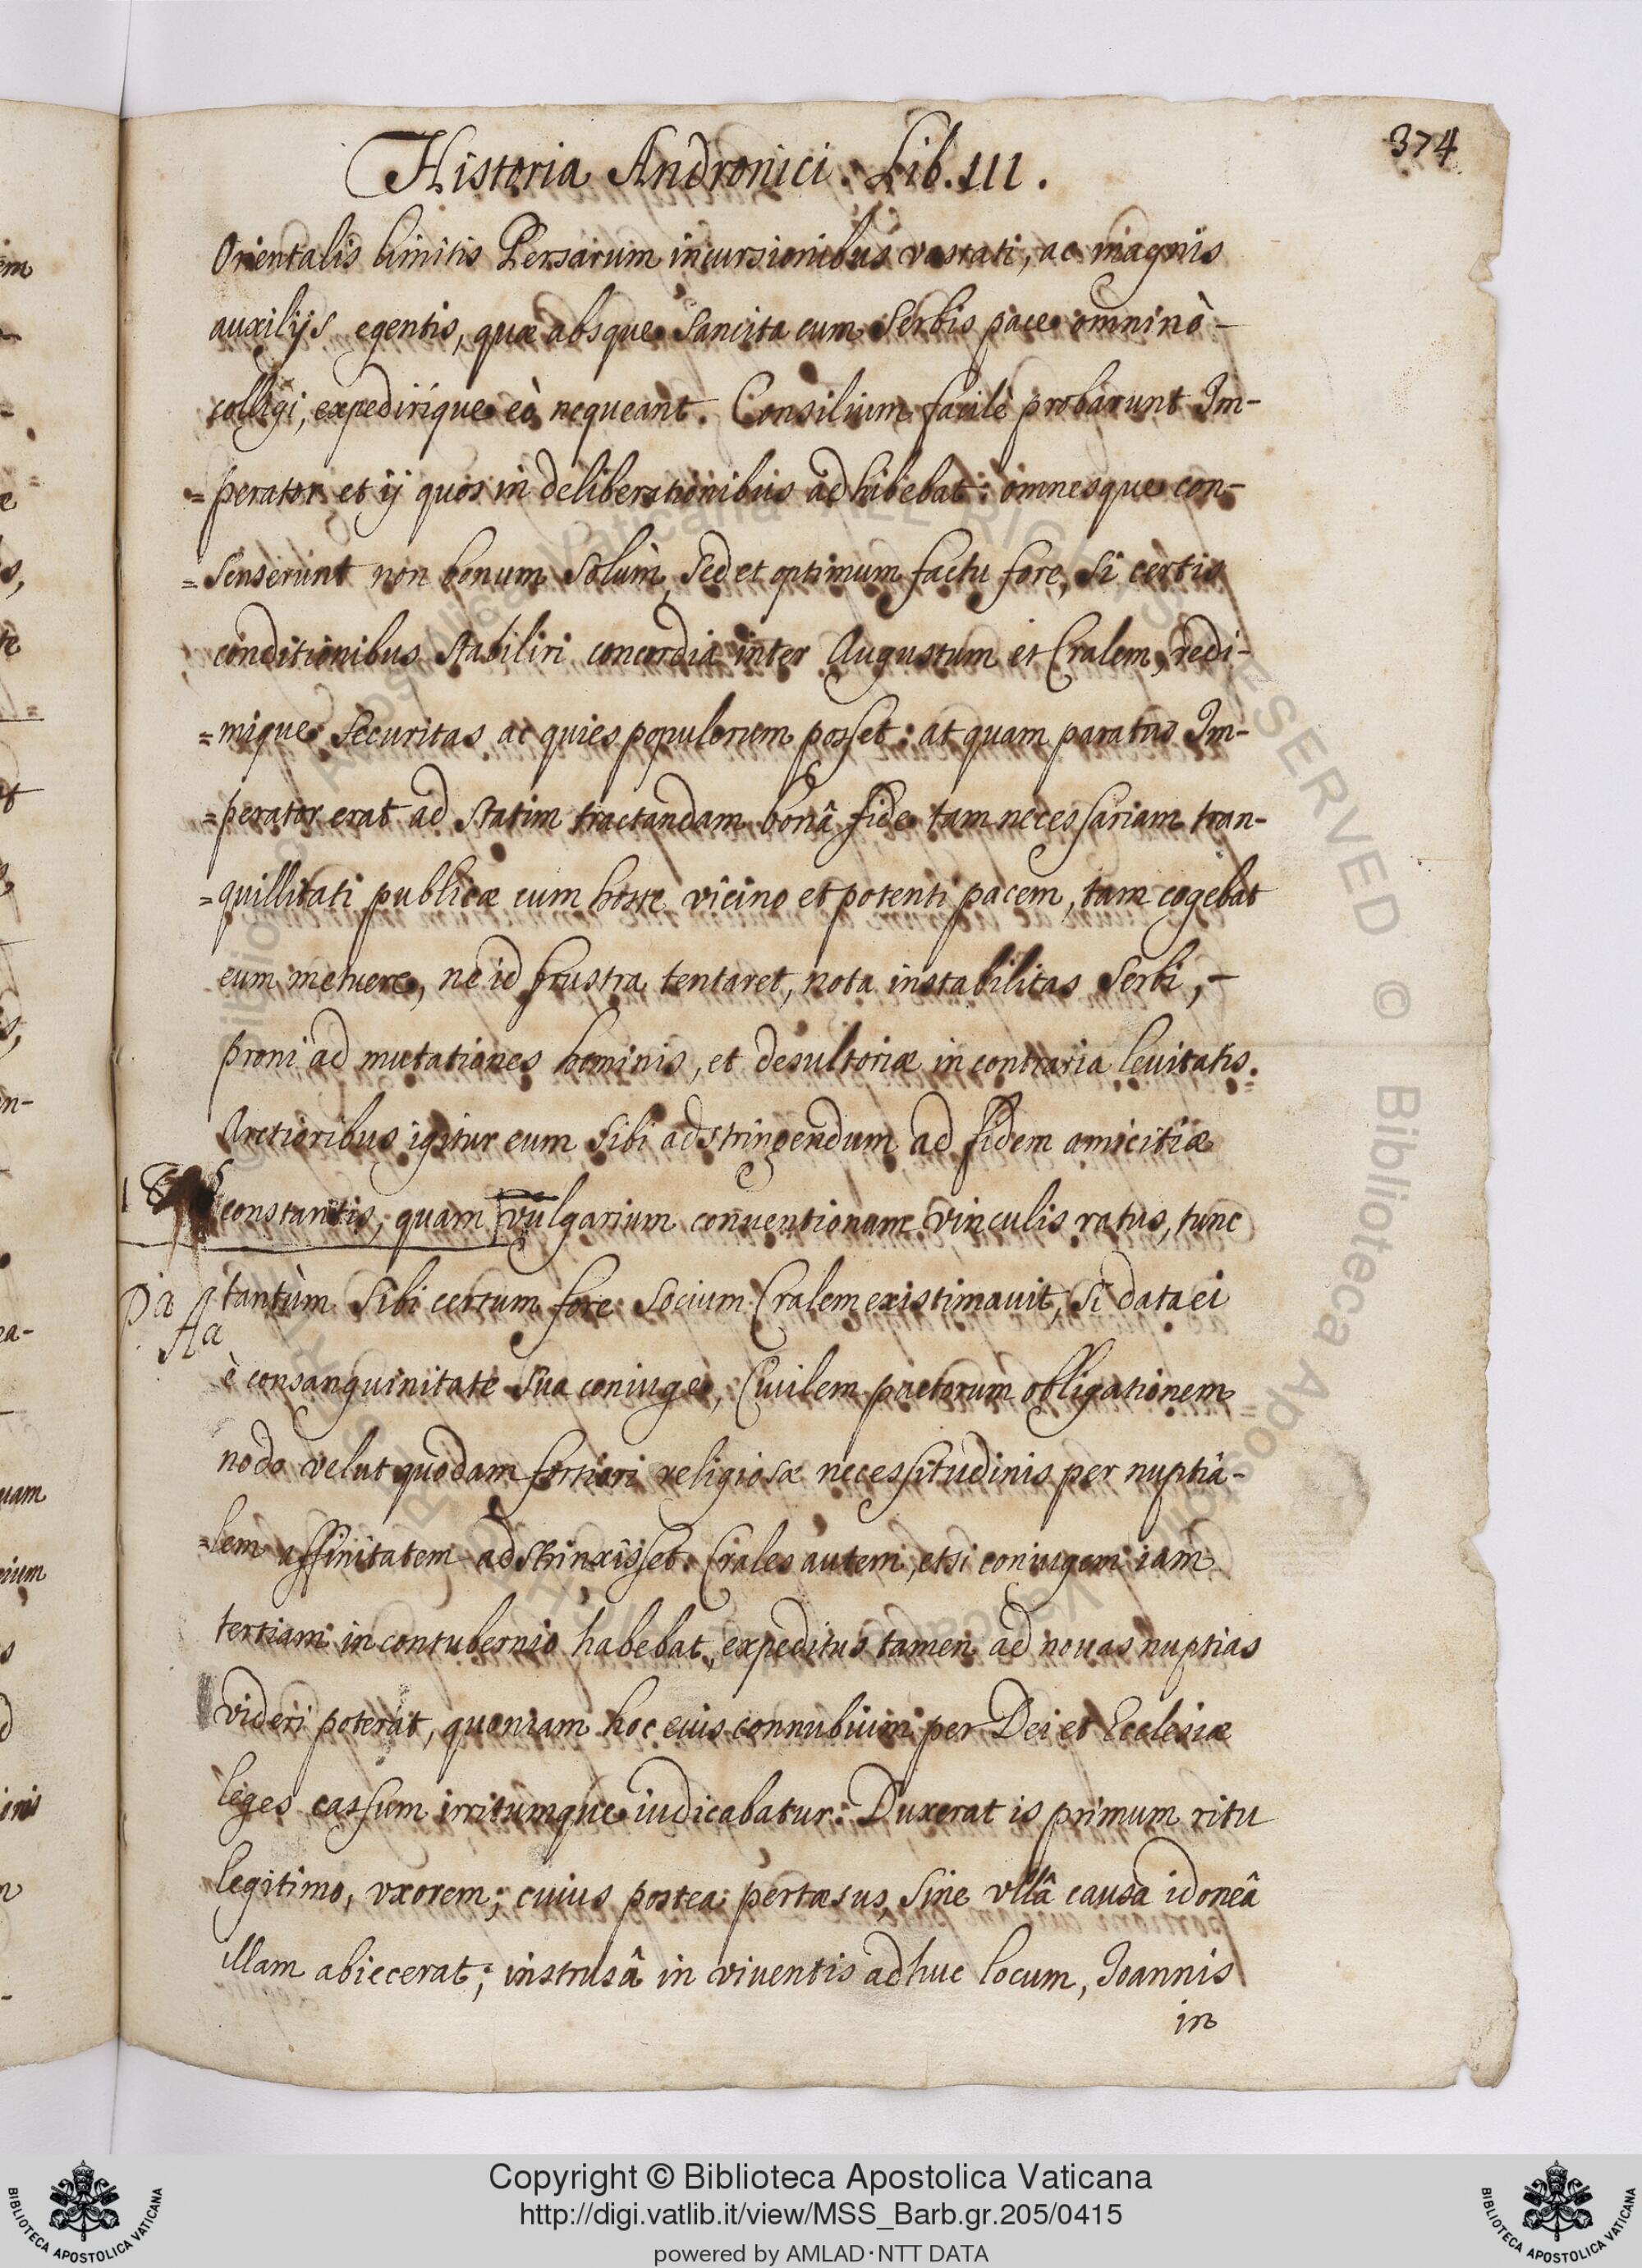 374
Historia Andronici. Lib. III.
Orientalis limitis Persarum incursionibus vastati, ac magnis
auxilijs egentis, quæ absque sancita cum Serbis pace omninò -
colligi, expedirique eò nequeant. Consilium facilè probarunt Im-
=perator et ij quos in deliberationibus adhibebat: omnesque con-
=senserunt non bonum solùm, sed et optimum factu fore, si certis
conditionibus stabiliri concordia inter Augustum et Cralem, redi-
=mique securitas ac quies populorum posset: at quam paratus Im-
=perator erat ad statim tractandam bonâ fide tam necessariam tran-
=quillitati publicæ cum hoste vicino et potenti pacem, tam cogebat
eum metuere, ne id frustra tentaret, nota instabilitas Serbi, -
proni ad mutationes hominis, et desultoriæ in contraria leuitatis.
Arctioribus igitur eum sibi adstringendum ad fidem amicitiæ
constantis, quam vulgarium conuentionum vinculis ratus, tunc
tantùm sibi certum fore socium Cralem existimauit, si data ei
è consanguinitate sua coniuge, Ciuilem pactorum obligationem
nodo velut quodam fortiori religiosæ necessitudinis per nuptia-
=lem affinitatem adstrinxisset. Crales autem, etsi coniugem iam
tertiam in contubernio habebat, expeditus tamen ad nouas nuptias
videri poterat, quoniam hoc eius connubium per Dei et Ecclesiæ
leges cassum irritumque iudicabatur. Duxerat is primum ritu
legitimo, vxorem; cuius postea pertæsus, sine vllâ causa idoneâ
illam abiecerat; instrusâ in viuentis adhuc locum, Joannis
in
Copyright © Biblioteca Apostolica Vaticana
http://digi.vatlib.it/view/MSS_Barb.gr.205/0415
powered by AMLAD·NTT DATA
BIBLIOTECA APOSTOLICA VATICANA
BIBLIOTECA APOSTOLICA VATICANA